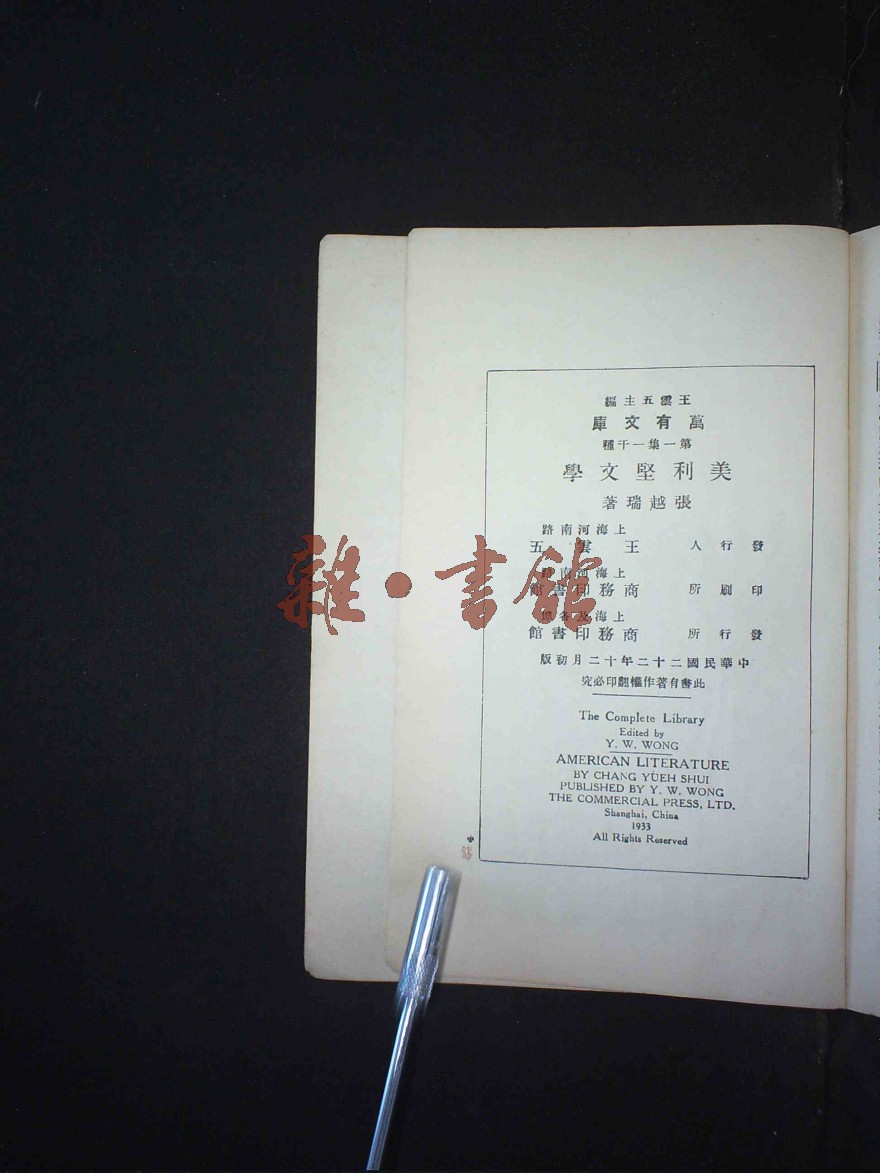 王雲五主編
萬有文庫
第一集一千種
美利堅文學
張越瑞著
上海河南路
發行人 王雲五
上海河南路
印刷所 商務印書館
上海及各埠
發行所 商務印書館
中華民國二十二年十二月初版
此書有著作權翻印必究
The Complete Library
Edited by
Y. W. WONG
AMERICAN LITERATURE
BY CHANG YÜEH SHUI
PUBLISHED BY Y. W. WONG
THE COMMERCIAL PRESS, LTD.
Shanghai, China
1933
All Rights Reserved
雜·書館